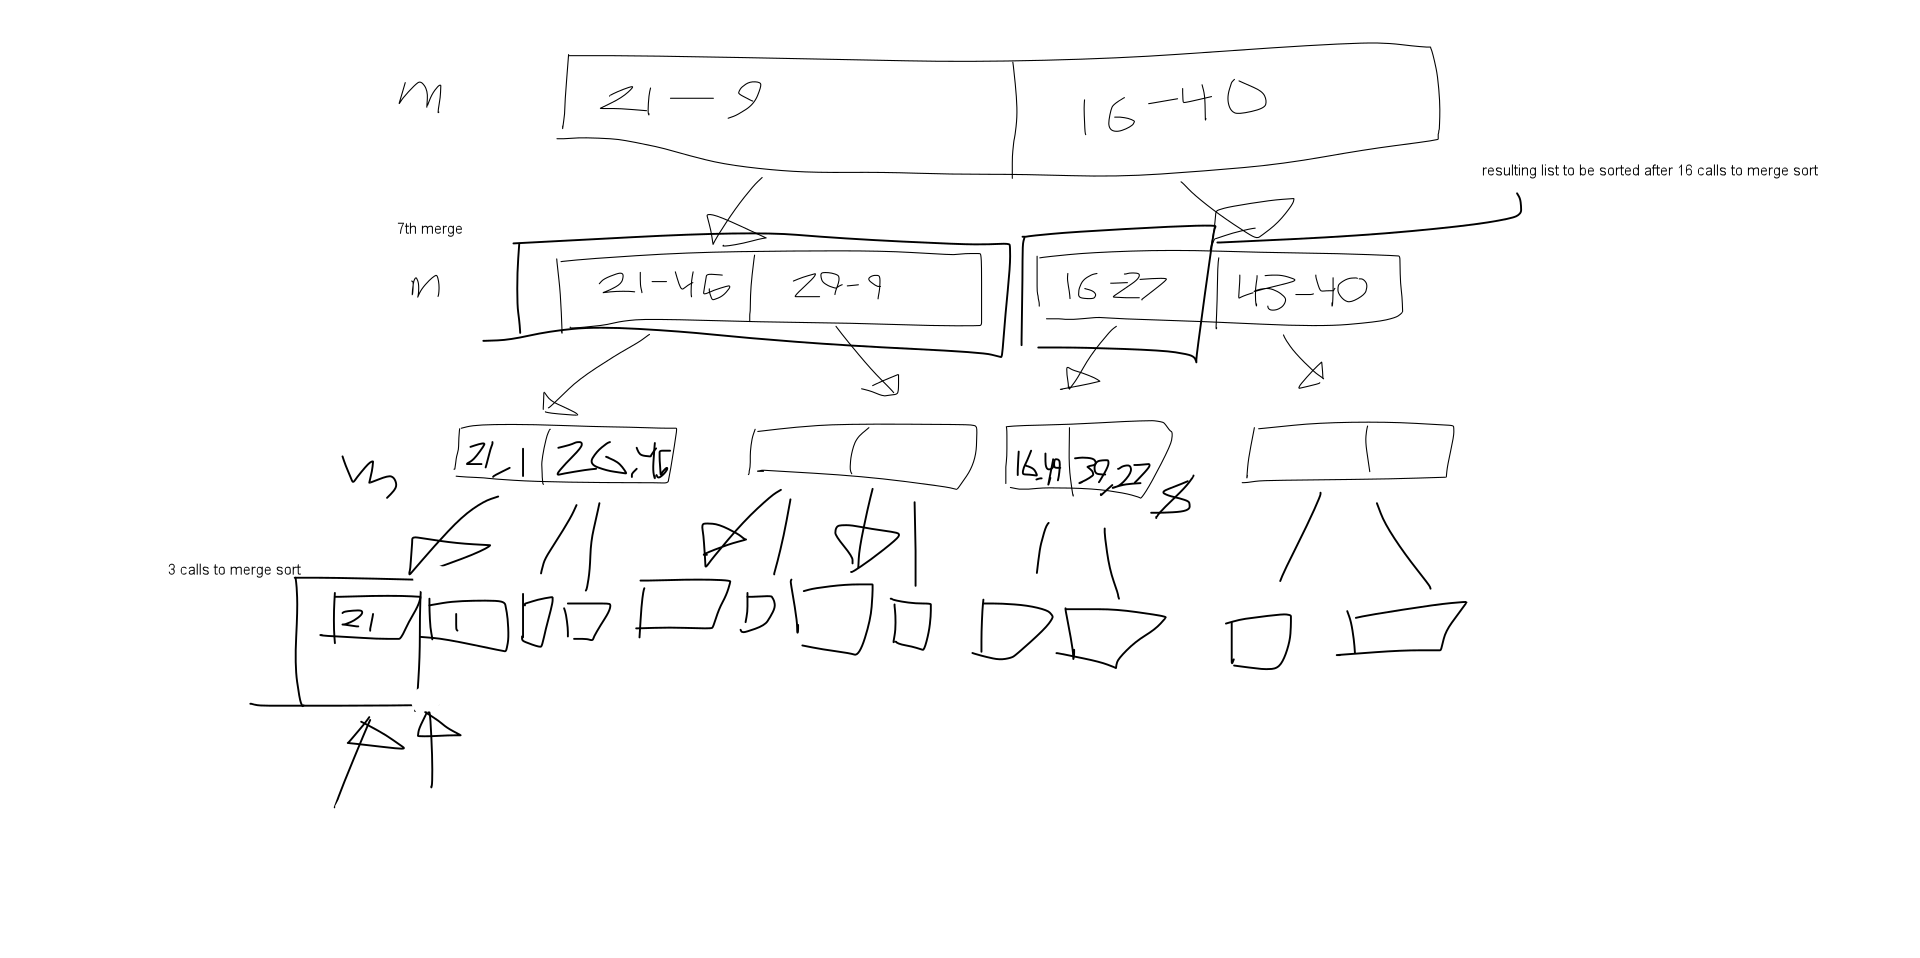 m
21-9
16-40
resulting list to be sorted after 16 calls to merge sort
7th merge
m
21-45
29-9
16-27
43-40
21,1
26,45
16,49
39,27
3 calls to merge sort
21
1